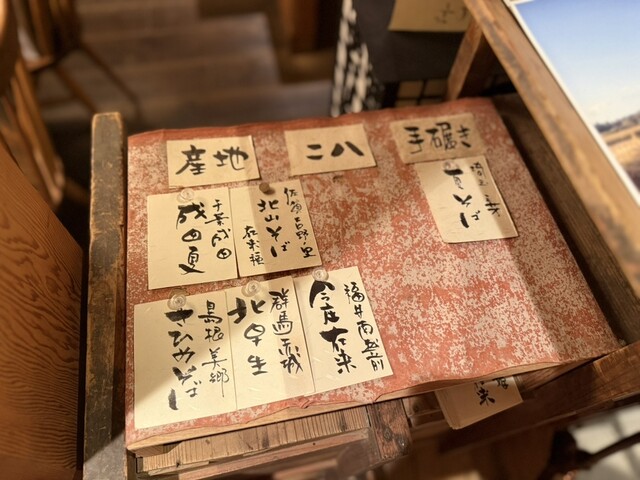 産地
二八
手碾き
佐賀吉野ヶ里
北山そば
在来種
千葉成田
成田夏
そば
福井南越前
今庄在来
群馬赤城
北早生
島根美郷
きひめそば
来